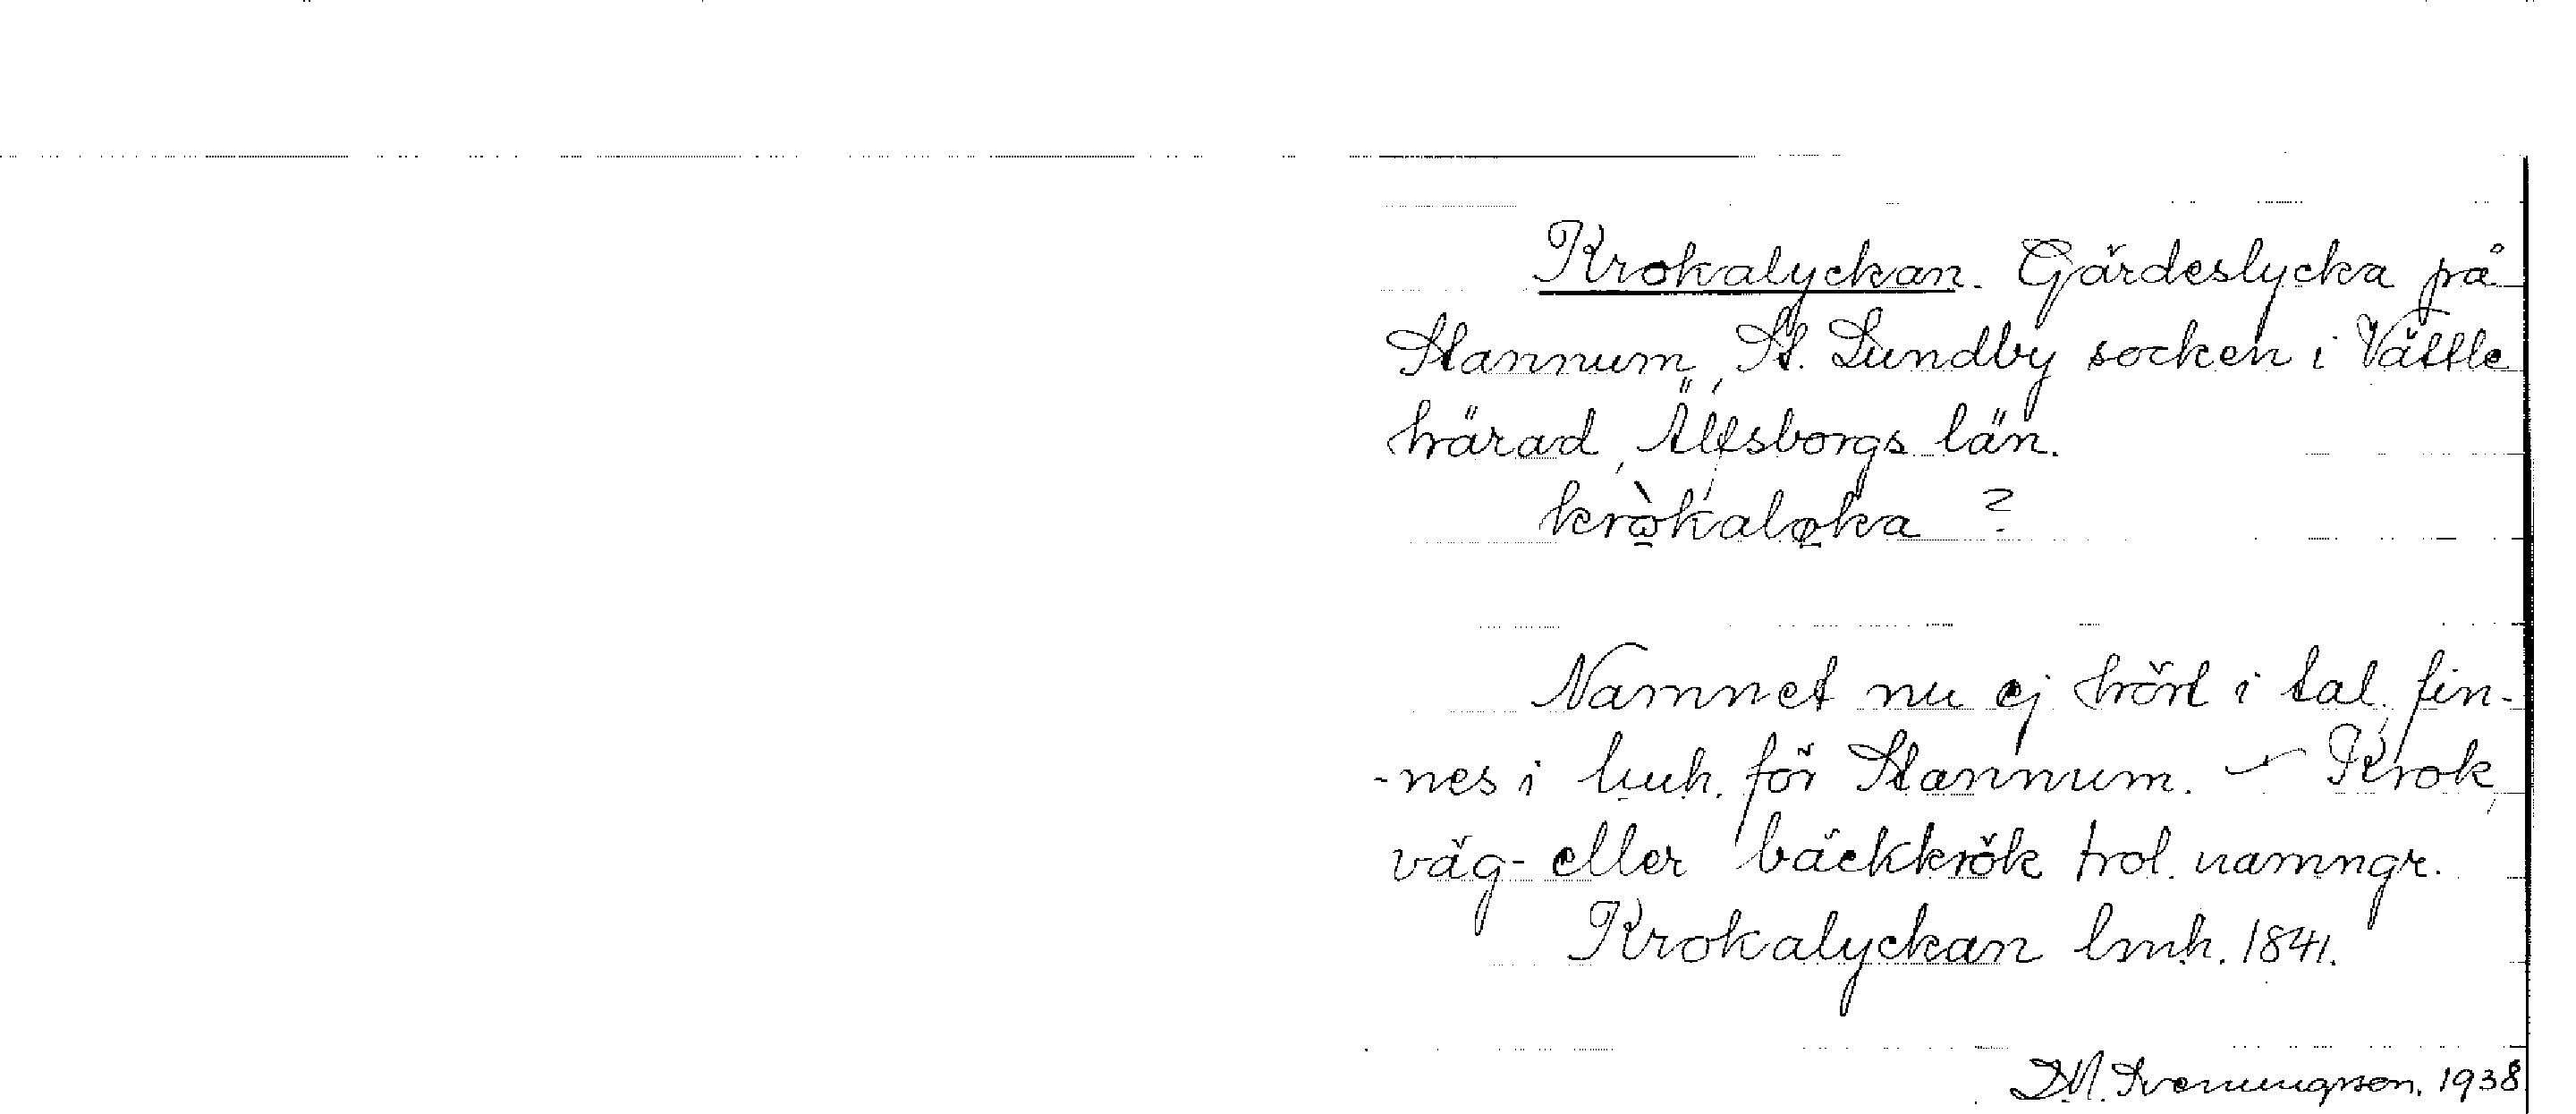 Krokalyckan. Gärdeslycka på
Stannum, St. Lundby socken i Vättle
härad, Älfsborgs län.
kròkaløka ?
Namnet nu ej hört i tal, fin-
-nes i lmh. för Stannum. – Krok,
väg- eller bäckkrök trol. namngr.
Krokalyckan lmh. 1841.
D.M. Svenningsson. 1938